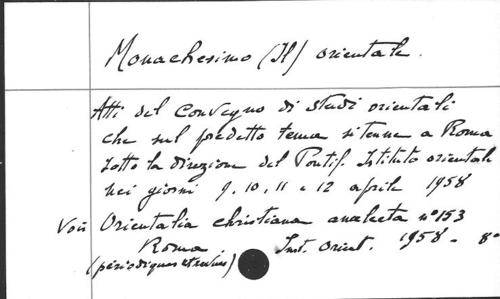 Monachesimo (Il) orientale.
Atti del Convegno di studi orientali
che sul predetto tema si tenne a Roma
sotto la direzione del Pontif. Istituto orientale
nei giorni 9, 10, 11 e 12 aprile 1958
Voir Orientalia christiana analecta n° 153
Roma, Inst. Orient. 1958 - 8°
(périodiques et revues)